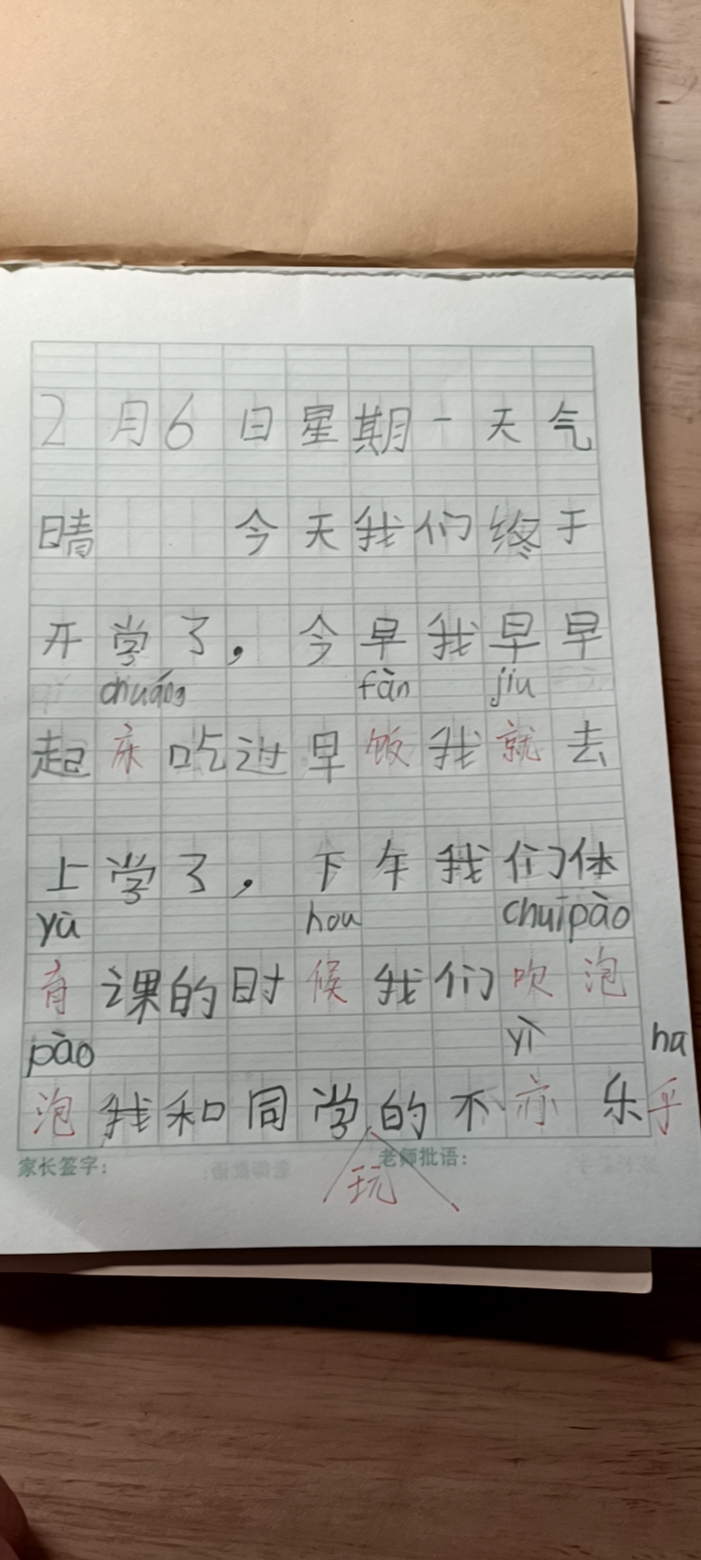 2月6日星期一天气
晴 今天我们终于
开学了，今早我早早
chuáng fàn jiu
起床吃过早饭我就去
上学了，下午我们体
yù hou chuīpào
育课的时候我们吹泡
pào yì hu
泡我和同学的不亦乐乎
玩
家长签字： 老师批语：